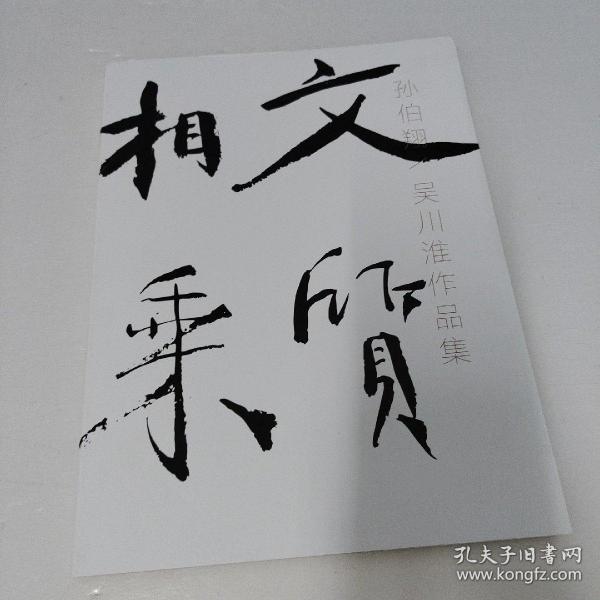 文质
相乘
孙伯翔/吴川淮作品集
孔夫子旧书网
www.kongfz.com